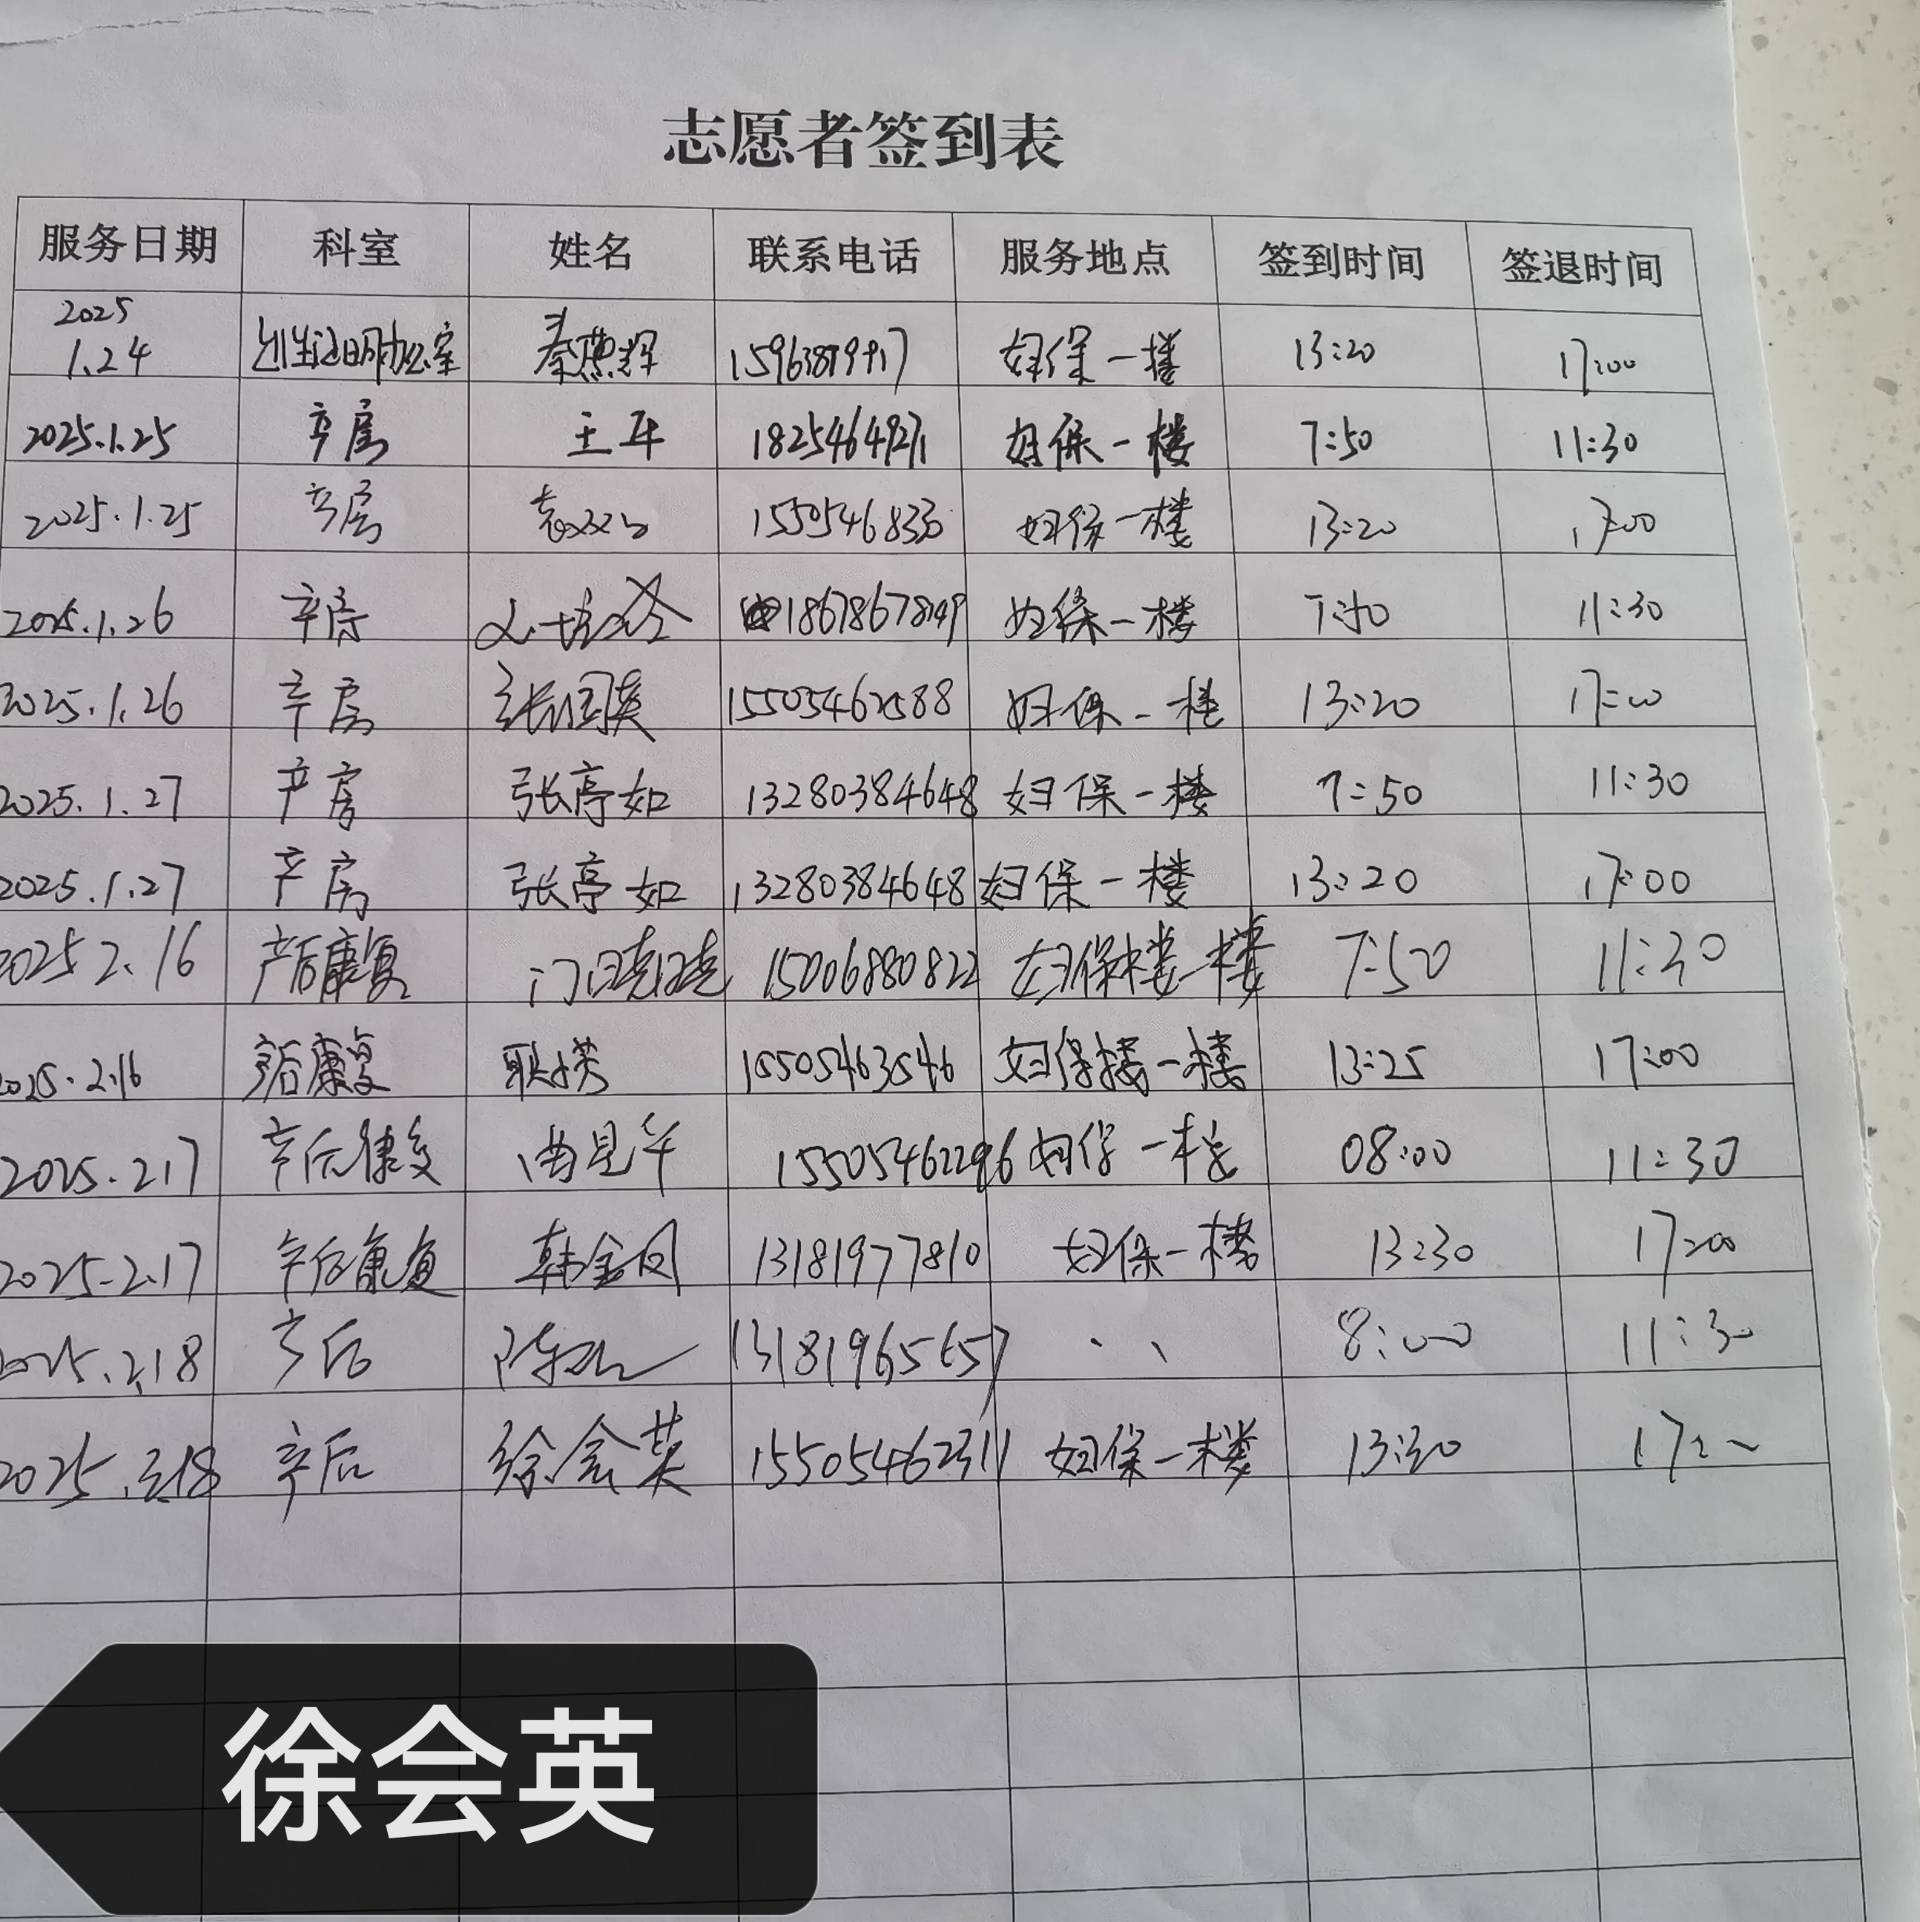 志愿者签到表
服务日期 科室 姓名 联系电话 服务地点 签到时间 签退时间
2025
1.24 妇保一楼 13:20 17:00
2025.1.25 产房 妇保一楼 7:50 11:30
2025.1.25 产房 妇保一楼 13:20 17:00
2025.1.26 产房 18678678149 妇保一楼 7:50 11:30
2025.1.26 产房 15505462588 妇保一楼 13:20 17:00
2025.1.27 产房 张亭如 13280384648 妇保一楼 7:50 11:30
2025.1.27 产房 张亭如 13280384648 妇保一楼 13:20 17:00
2025 2.16 产后康复 门晓晓 15006880822 妇保楼一楼 7:50 11:30
2025.2.16 产后康复 15505463546 妇保楼一楼 13:25 17:00
2025.2.17 产后康复 15505462296 妇保一楼 08:00 11:30
2025.2.17 产后康复 韩金凤 13181977810 妇保一楼 13:30 17:00
2025.2.18 产后 13181965657 、、 8:00 11:30
产后 徐会英 15505462311 妇保一楼 13:30
徐会英